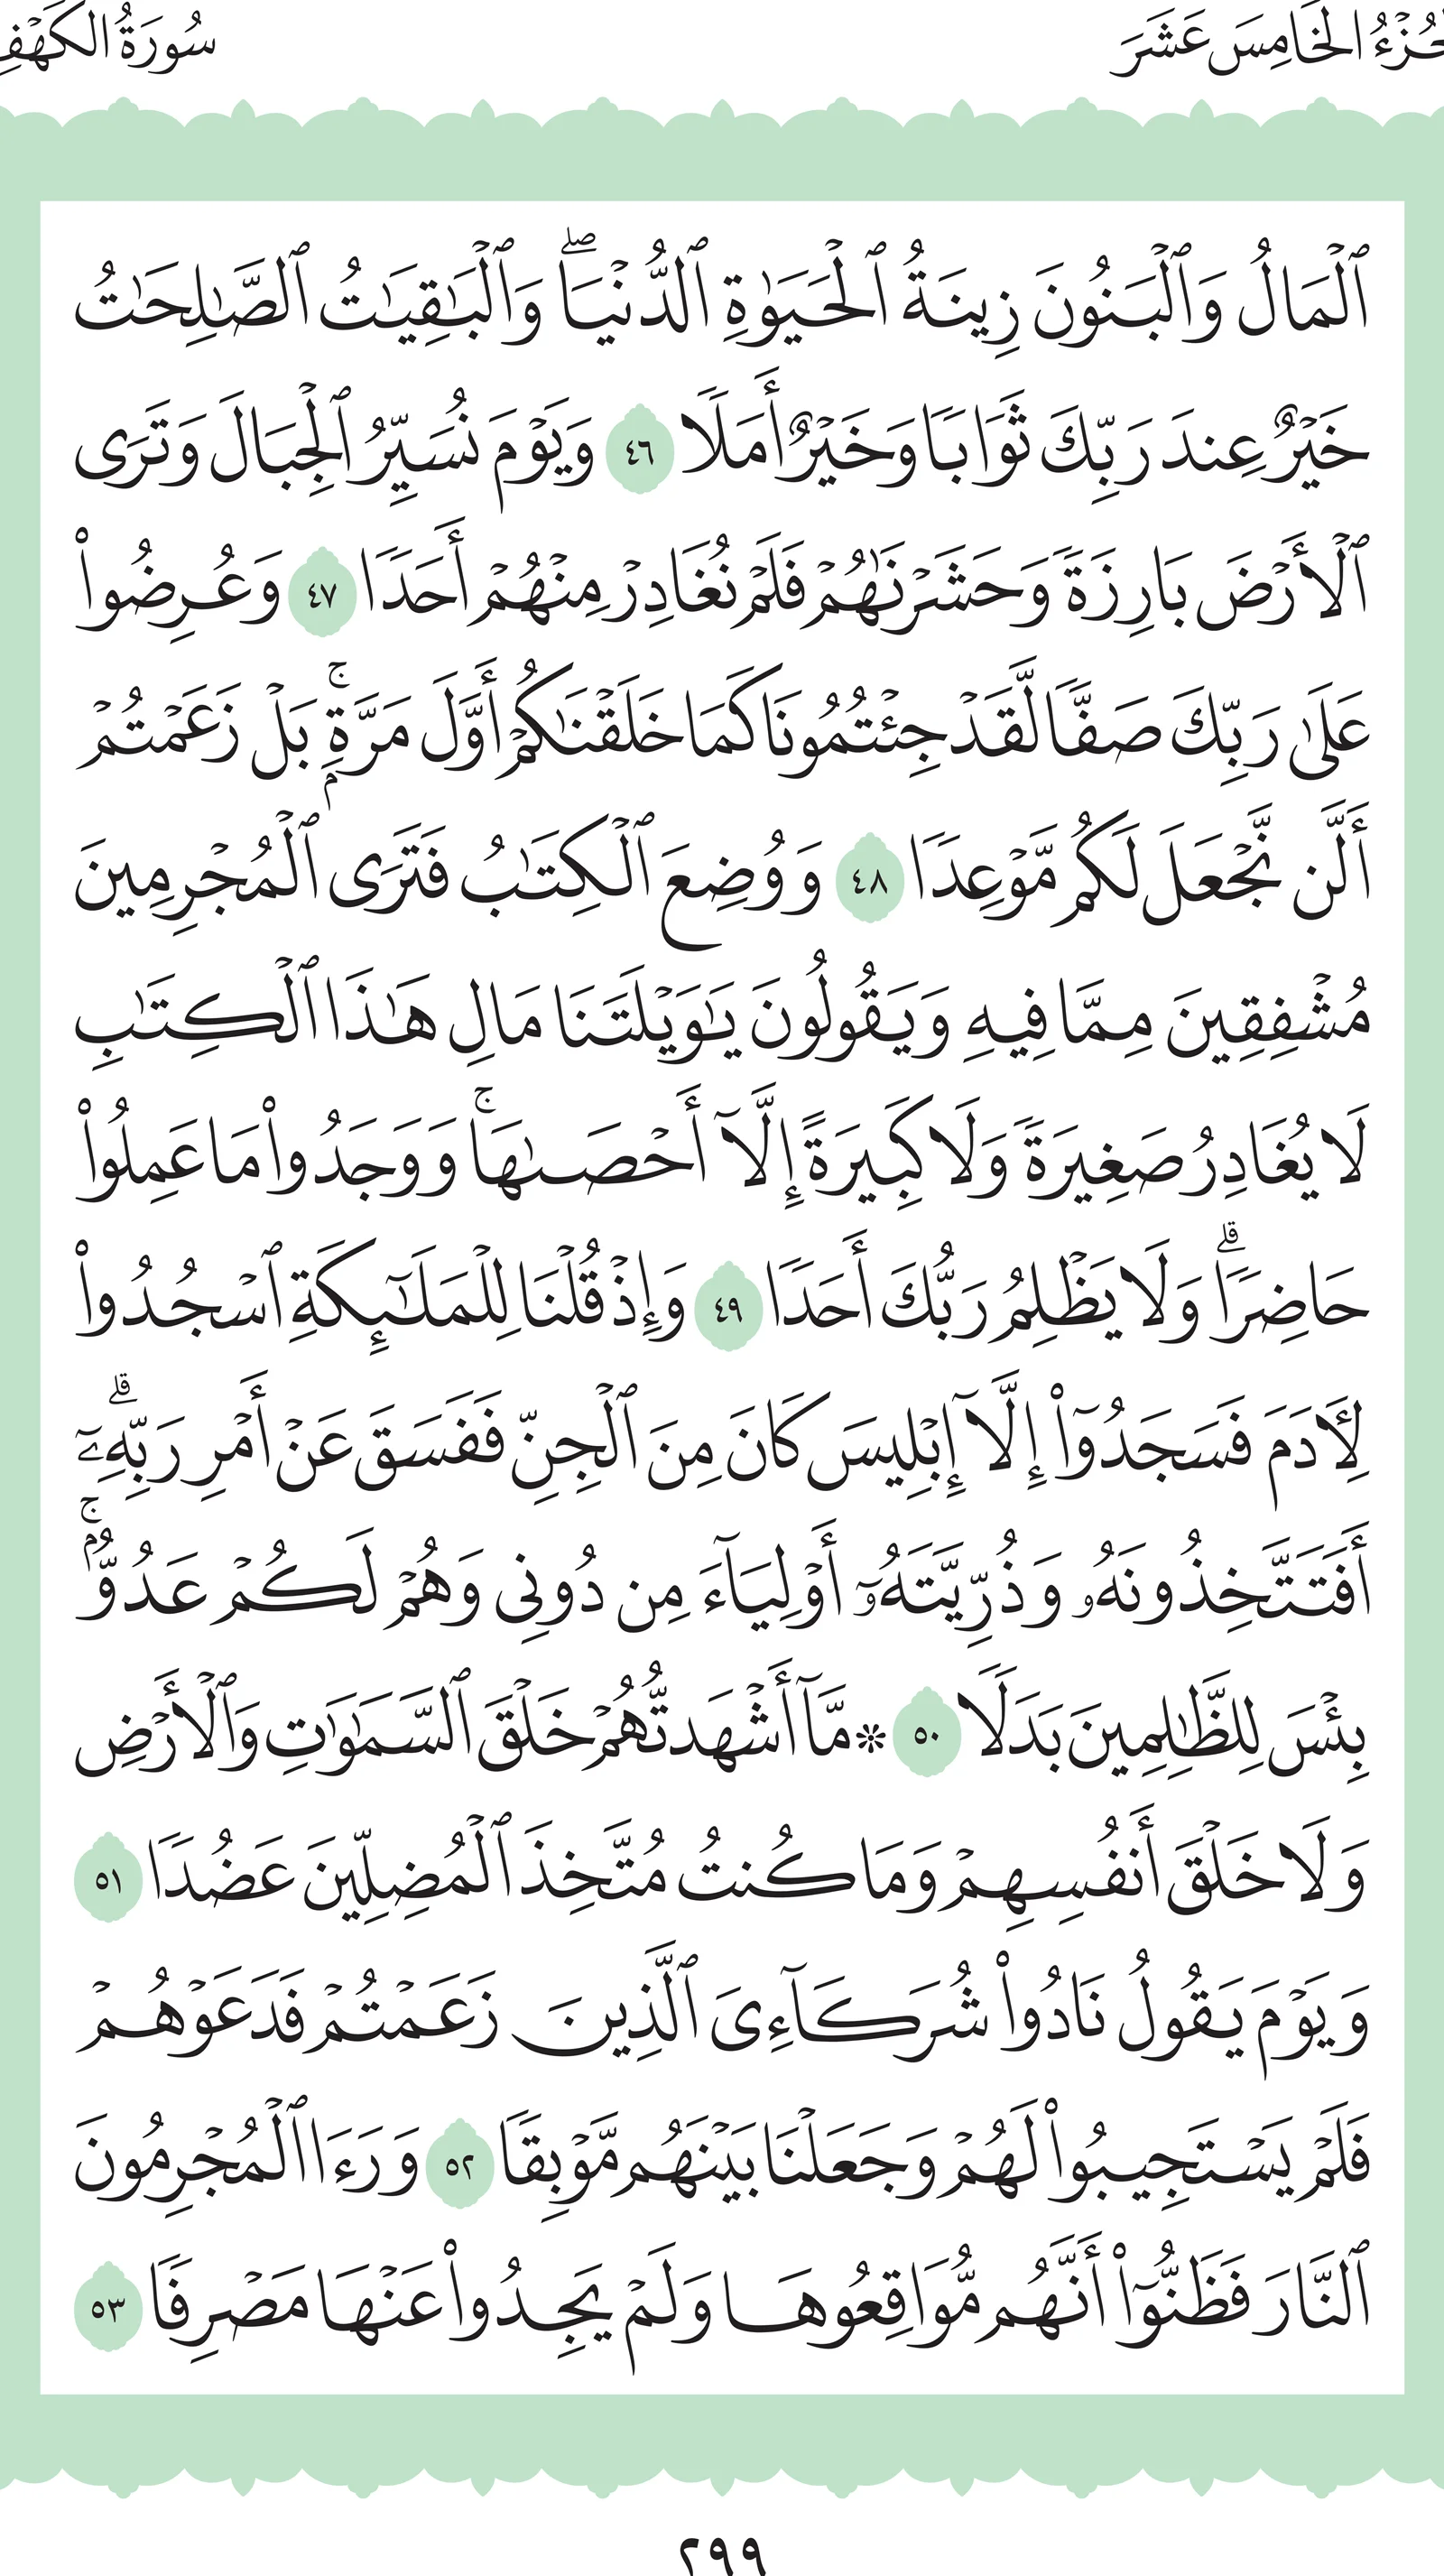 الجُزْءُ الخَامِسَ عَشَرَ سُورَةُ الكَهْفِ
ٱلْمَالُ وَٱلْبَنُونَ زِينَةُ ٱلْحَيَوٰةِ ٱلدُّنْيَاۖ وَٱلْبَٰقِيَٰتُ ٱلصَّٰلِحَٰتُ
خَيْرٌ عِندَ رَبِّكَ ثَوَابًا وَخَيْرٌ أَمَلًا ٤٦ وَيَوْمَ نُسَيِّرُ ٱلْجِبَالَ وَتَرَى
ٱلْأَرْضَ بَارِزَةً وَحَشَرْنَٰهُمْ فَلَمْ نُغَادِرْ مِنْهُمْ أَحَدًا ٤٧ وَعُرِضُوا۟
عَلَىٰ رَبِّكَ صَفًّا لَّقَدْ جِئْتُمُونَا كَمَا خَلَقْنَٰكُمْ أَوَّلَ مَرَّةٍۭۚ بَلْ زَعَمْتُمْ
أَلَّن نَّجْعَلَ لَكُم مَّوْعِدًا ٤٨ وَوُضِعَ ٱلْكِتَٰبُ فَتَرَى ٱلْمُجْرِمِينَ
مُشْفِقِينَ مِمَّا فِيهِ وَيَقُولُونَ يَٰوَيْلَتَنَا مَالِ هَٰذَا ٱلْكِتَٰبِ
لَا يُغَادِرُ صَغِيرَةً وَلَا كَبِيرَةً إِلَّآ أَحْصَىٰهَاۚ وَوَجَدُوا۟ مَا عَمِلُوا۟
حَاضِرًاۗ وَلَا يَظْلِمُ رَبُّكَ أَحَدًا ٤٩ وَإِذْ قُلْنَا لِلْمَلَٰٓئِكَةِ ٱسْجُدُوا۟
لِـَٔادَمَ فَسَجَدُوٓا۟ إِلَّآ إِبْلِيسَ كَانَ مِنَ ٱلْجِنِّ فَفَسَقَ عَنْ أَمْرِ رَبِّهِۦٓۗ
أَفَتَتَّخِذُونَهُۥ وَذُرِّيَّتَهُۥٓ أَوْلِيَآءَ مِن دُونِى وَهُمْ لَكُمْ عَدُوٌّۢۚ
بِئْسَ لِلظَّٰلِمِينَ بَدَلًا ٥٠ ۞ مَّآ أَشْهَدتُّهُمْ خَلْقَ ٱلسَّمَٰوَٰتِ وَٱلْأَرْضِ
وَلَا خَلْقَ أَنفُسِهِمْ وَمَا كُنتُ مُتَّخِذَ ٱلْمُضِلِّينَ عَضُدًا ٥١
وَيَوْمَ يَقُولُ نَادُوا۟ شُرَكَآءِىَ ٱلَّذِينَ زَعَمْتُمْ فَدَعَوْهُمْ
فَلَمْ يَسْتَجِيبُوا۟ لَهُمْ وَجَعَلْنَا بَيْنَهُم مَّوْبِقًا ٥٢ وَرَءَا ٱلْمُجْرِمُونَ
ٱلنَّارَ فَظَنُّوٓا۟ أَنَّهُم مُّوَاقِعُوهَا وَلَمْ يَجِدُوا۟ عَنْهَا مَصْرِفًا ٥٣
٢٩٩